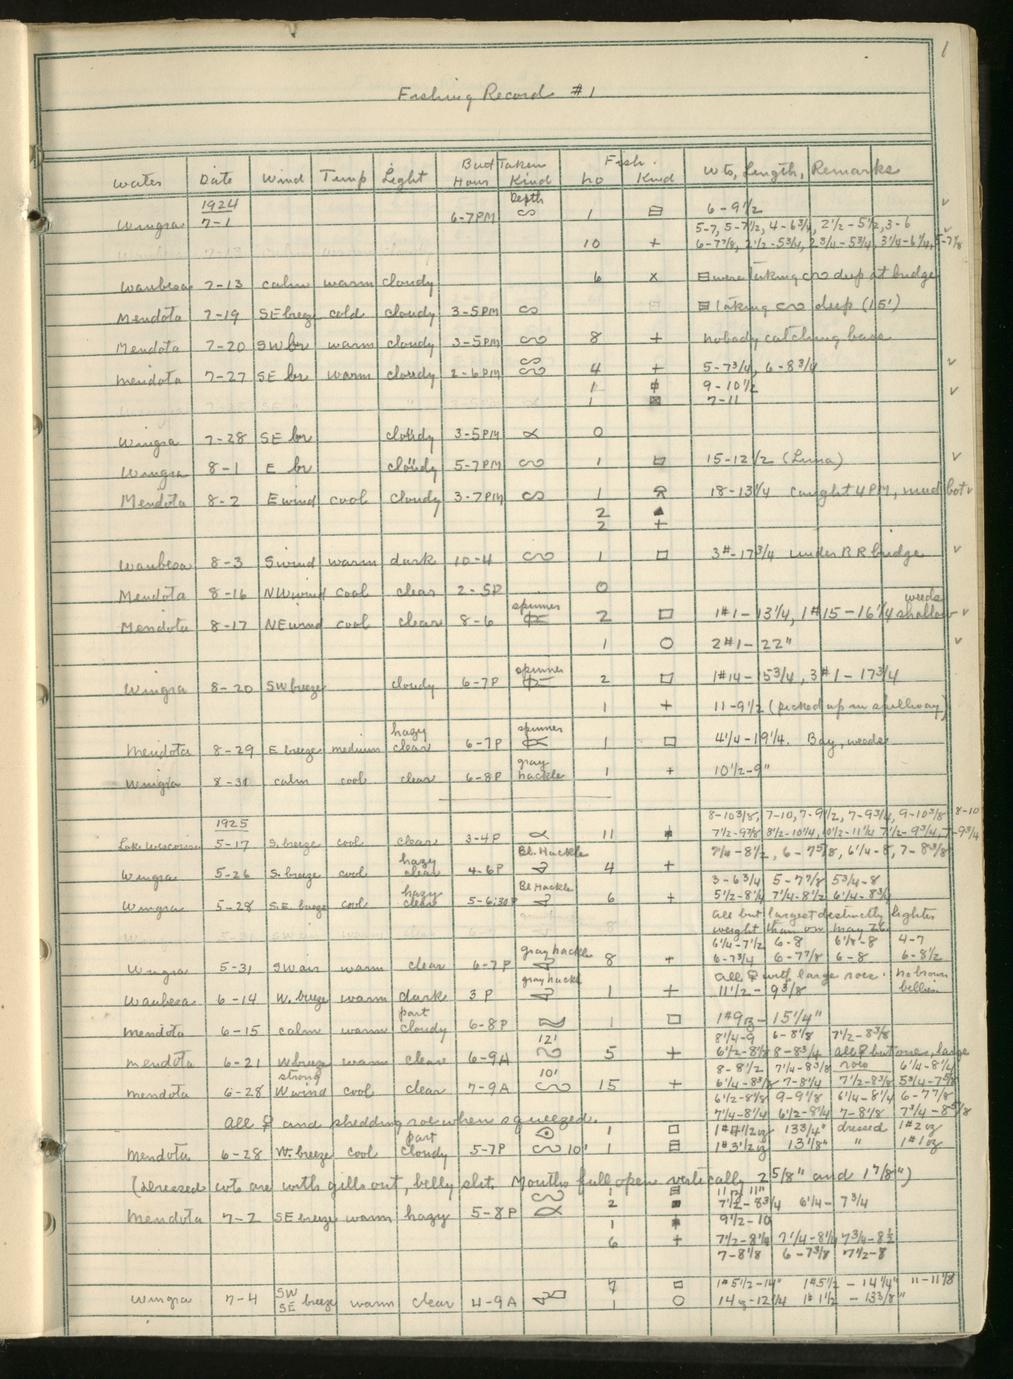 1
Fishing Record #1
Water Date Wind Temp Light Bait Taken Fish.
Hour Kind no Kind Wts, Length, Remarks
1924 Depth
Wingra 7-1 6-7PM 1 6-9½
5-7, 5-7½, 4-6¾, 2½-5½, 3-6
10 + 6-7⅞, 2½-5¾, 2¾-5¾, 3¼-6¼, 5-7⅞
Waubesa 7-13 calm warm cloudy 6 x were taking deep at bridge
Mendota 7-19 SE breeze cold cloudy 3-5PM taking deep (15')
Mendota 7-20 SW br warm cloudy 3-5PM 8 + nobody catching bass
Mendota 7-27 SE br warm cloudy 2-6PM 4 + 5-7¾, 6-8¾
1 9-10½
1 7-11
Wingra 7-28 SE br cloudy 3-5PM 0
Wingra 8-1 E br cloudy 5-7PM 1 15-12½ (Luna)
Mendota 8-2 E wind cool cloudy 3-7PM 1 18-13¼ caught 4PM, mud bot
2
2 +
Waubesa 8-3 S wind warm dark 10-4 1 3#-17¾ under RR bridge
Mendota 8-16 NW wind cool clear 2-5P 0
spinner weeds
Mendota 8-17 NE wind cool clear 8-6 2 1#1-13¼, 1#15-16¼ shallow
1 2#1-22"
spinner
Wingra 8-20 SW breeze cloudy 6-7P 2 1#14-15¾, 3#1-17¾
1 + 11-9½ (picked up in spillway)
hazy spinner
Mendota 8-29 E breeze medium clear 6-7P 1 4¼-19¼. Bay, weeds
gray
Wingra 8-31 calm cool clear 6-8P hackle 1 + 10½-9"
1925 8-10⅜, 7-10, 7-9½, 7-9¾, 9-10⅜ 8-10
Lake Wisconsin 5-17 S. breeze cool clear 3-4P 11 7½-9⅞ 8½-10¼, 10½-11¼ 7½-9¾, 7-9¾
hazy Bl. Hackle 7¼-8½, 6-7⅝, 6¼-8, 7-8⅜
Wingra 5-26 S. breeze cool clear 4-6P 4 +
hazy Bl Hackle 3-6¾ 5-7⅞ 5¾-8
Wingra 5-28 S.E. breeze cool clear 5-6:30P 6 + 5½-8¼ 7¼-8½ 6¼-8¾
all but largest distinctly lighter
weight than on May 26
gray hackle 6¼-7½ 6-8 6⅛-8 4-7
Wingra 5-31 SW air warm clear 6-7P 8 + 6-7¾ 6-7⅞ 6-8 6-8½
gray hackl all ♀ with large roes. no brown
Waubesa 6-14 W. breeze warm dark 3P 1 + 11½-9⅜ bellies
part
Mendota 6-15 calm warm cloudy 6-8P 1 1#9oz-15¼"
12' 8¼-9 6-8⅛ 7½-8⅜
Mendota 6-21 W breeze warm clear 6-9A 5 + 6½-8⅛ 8-8¾ all ♀ but ones, large
strong 10' 8-8½ 7¼-8⅜ roes 6¼-8¼
Mendota 6-28 W wind cool clear 7-9A 15 + 6¼-8⅜ 7-8¼ 7½-8⅜ 5¾-7⅝
6½-8⅛ 9-9⅛ 6¼-8¼ 6-7⅞
7¼-8¼ 6½-8¼ 7-8⅛ 7¾-8⅝
all ♀ and shedding roe when squeezed.
part 1 1#4½oz 13¾" dressed 1#2oz
Mendota 6-28 W. breeze cool cloudy 5-7P 10' 1 1#3½oz 13⅛" " 1#1oz
(dressed wts are with gills out, belly slit. Mouths full open vertically 2⅝" and 1⅞")
1 11oz 11"
2 7½-8¾ 6¼-7¾
Mendota 7-2 SE breeze warm hazy 5-8P 1 9½-10
6 + 7½-8¼ 7¼-8¼ 7¾-8½
7-8⅛ 6-7⅜ 7½-8
SW 7 1#5½-14" 1#5½-14¼" 11-11⅞
Wingra 7-4 SE breeze warm clear 4-9A 1 14oz-12¼ 1#1½-13⅜"